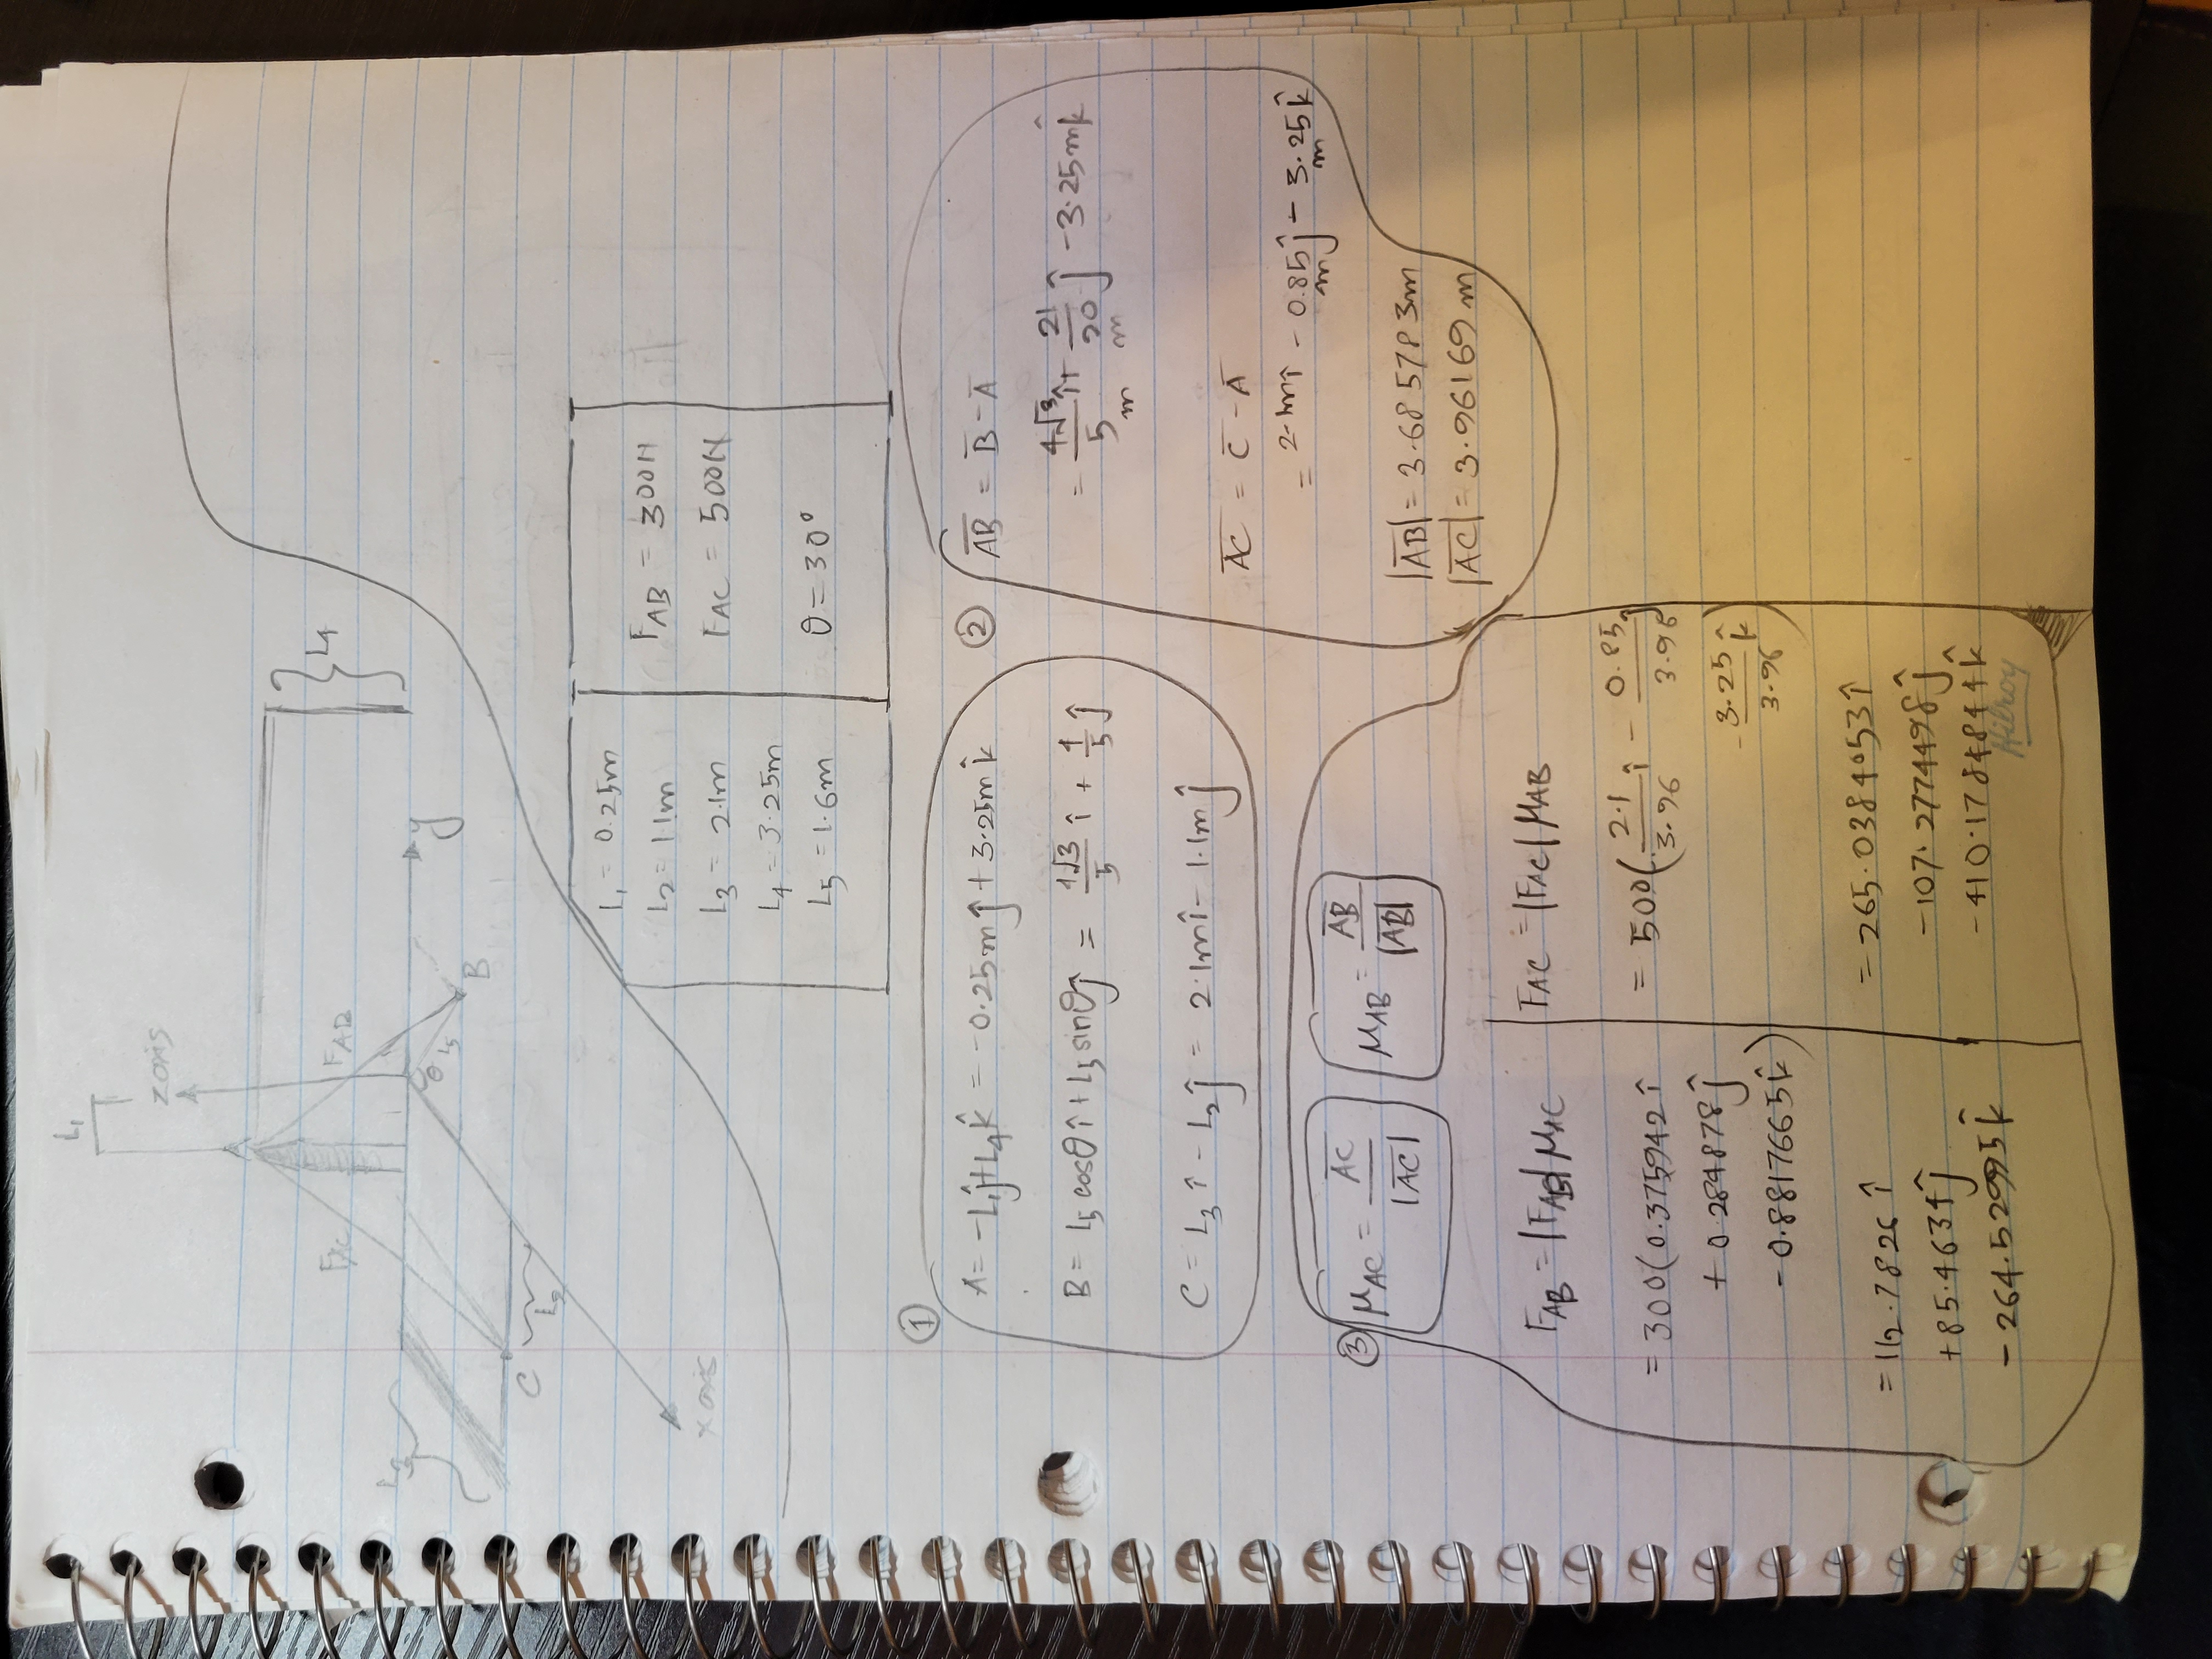 L₁
z axis
F_AC
F_AB
L₄
L₃
y
θ L₅
B
C
L₂
x axis
L₁ = 0.25m
L₂ = 1.1m
L₃ = 2.1m
L₄ = 3.25m
L₅ = 1.6m
F_AB = 300N
F_AC = 500N
θ = 30°
①
A = -L₁ĵ + L₄k̂ = -0.25m ĵ + 3.25m k̂
B = L₅ cosθ î + L₅ sinθ ĵ = 4√3/5 î + 4/5 ĵ
C = L₃ î - L₂ ĵ = 2.1m î - 1.1m ĵ
②
A̅B̅ = B̅ - A̅
= 4√3/5 m î + 21/20 m ĵ - 3.25m k̂
A̅C̅ = C̅ - A̅
= 2.1m î - 0.85 m ĵ - 3.25 m k̂
|A̅B̅| = 3.685783m
|A̅C̅| = 3.96169 m
③
μ_AC = A̅C̅/|A̅C̅|
μ_AB = A̅B̅/|A̅B̅|
F_AB = |F_AB| μ_AC
= 300(0.375942 î
+ 0.284878 ĵ
- 0.8817665 k̂)
= 112.7826 î
+ 85.4634 ĵ
- 264.52995 k̂
F_AC = |F_AC| μ_AB
= 500(2.1/3.96 î - 0.85/3.96 ĵ
- 3.25/3.96 k̂)
= 265.0384053 î
- 107.2774498 ĵ
- 410.1784844 k̂
Hilroy